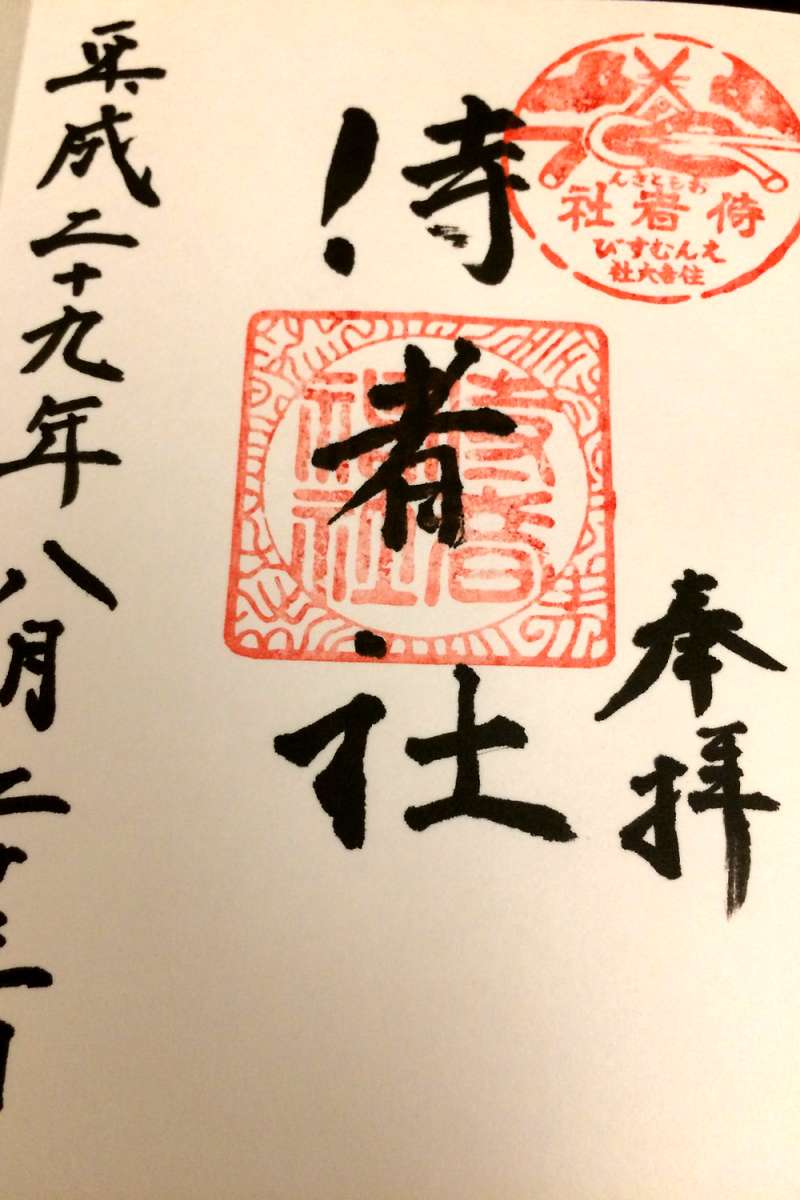 おもとさん
侍者社
えんむすび
住吉大社
奉拝
侍者社
平成二十九年八月二十三日